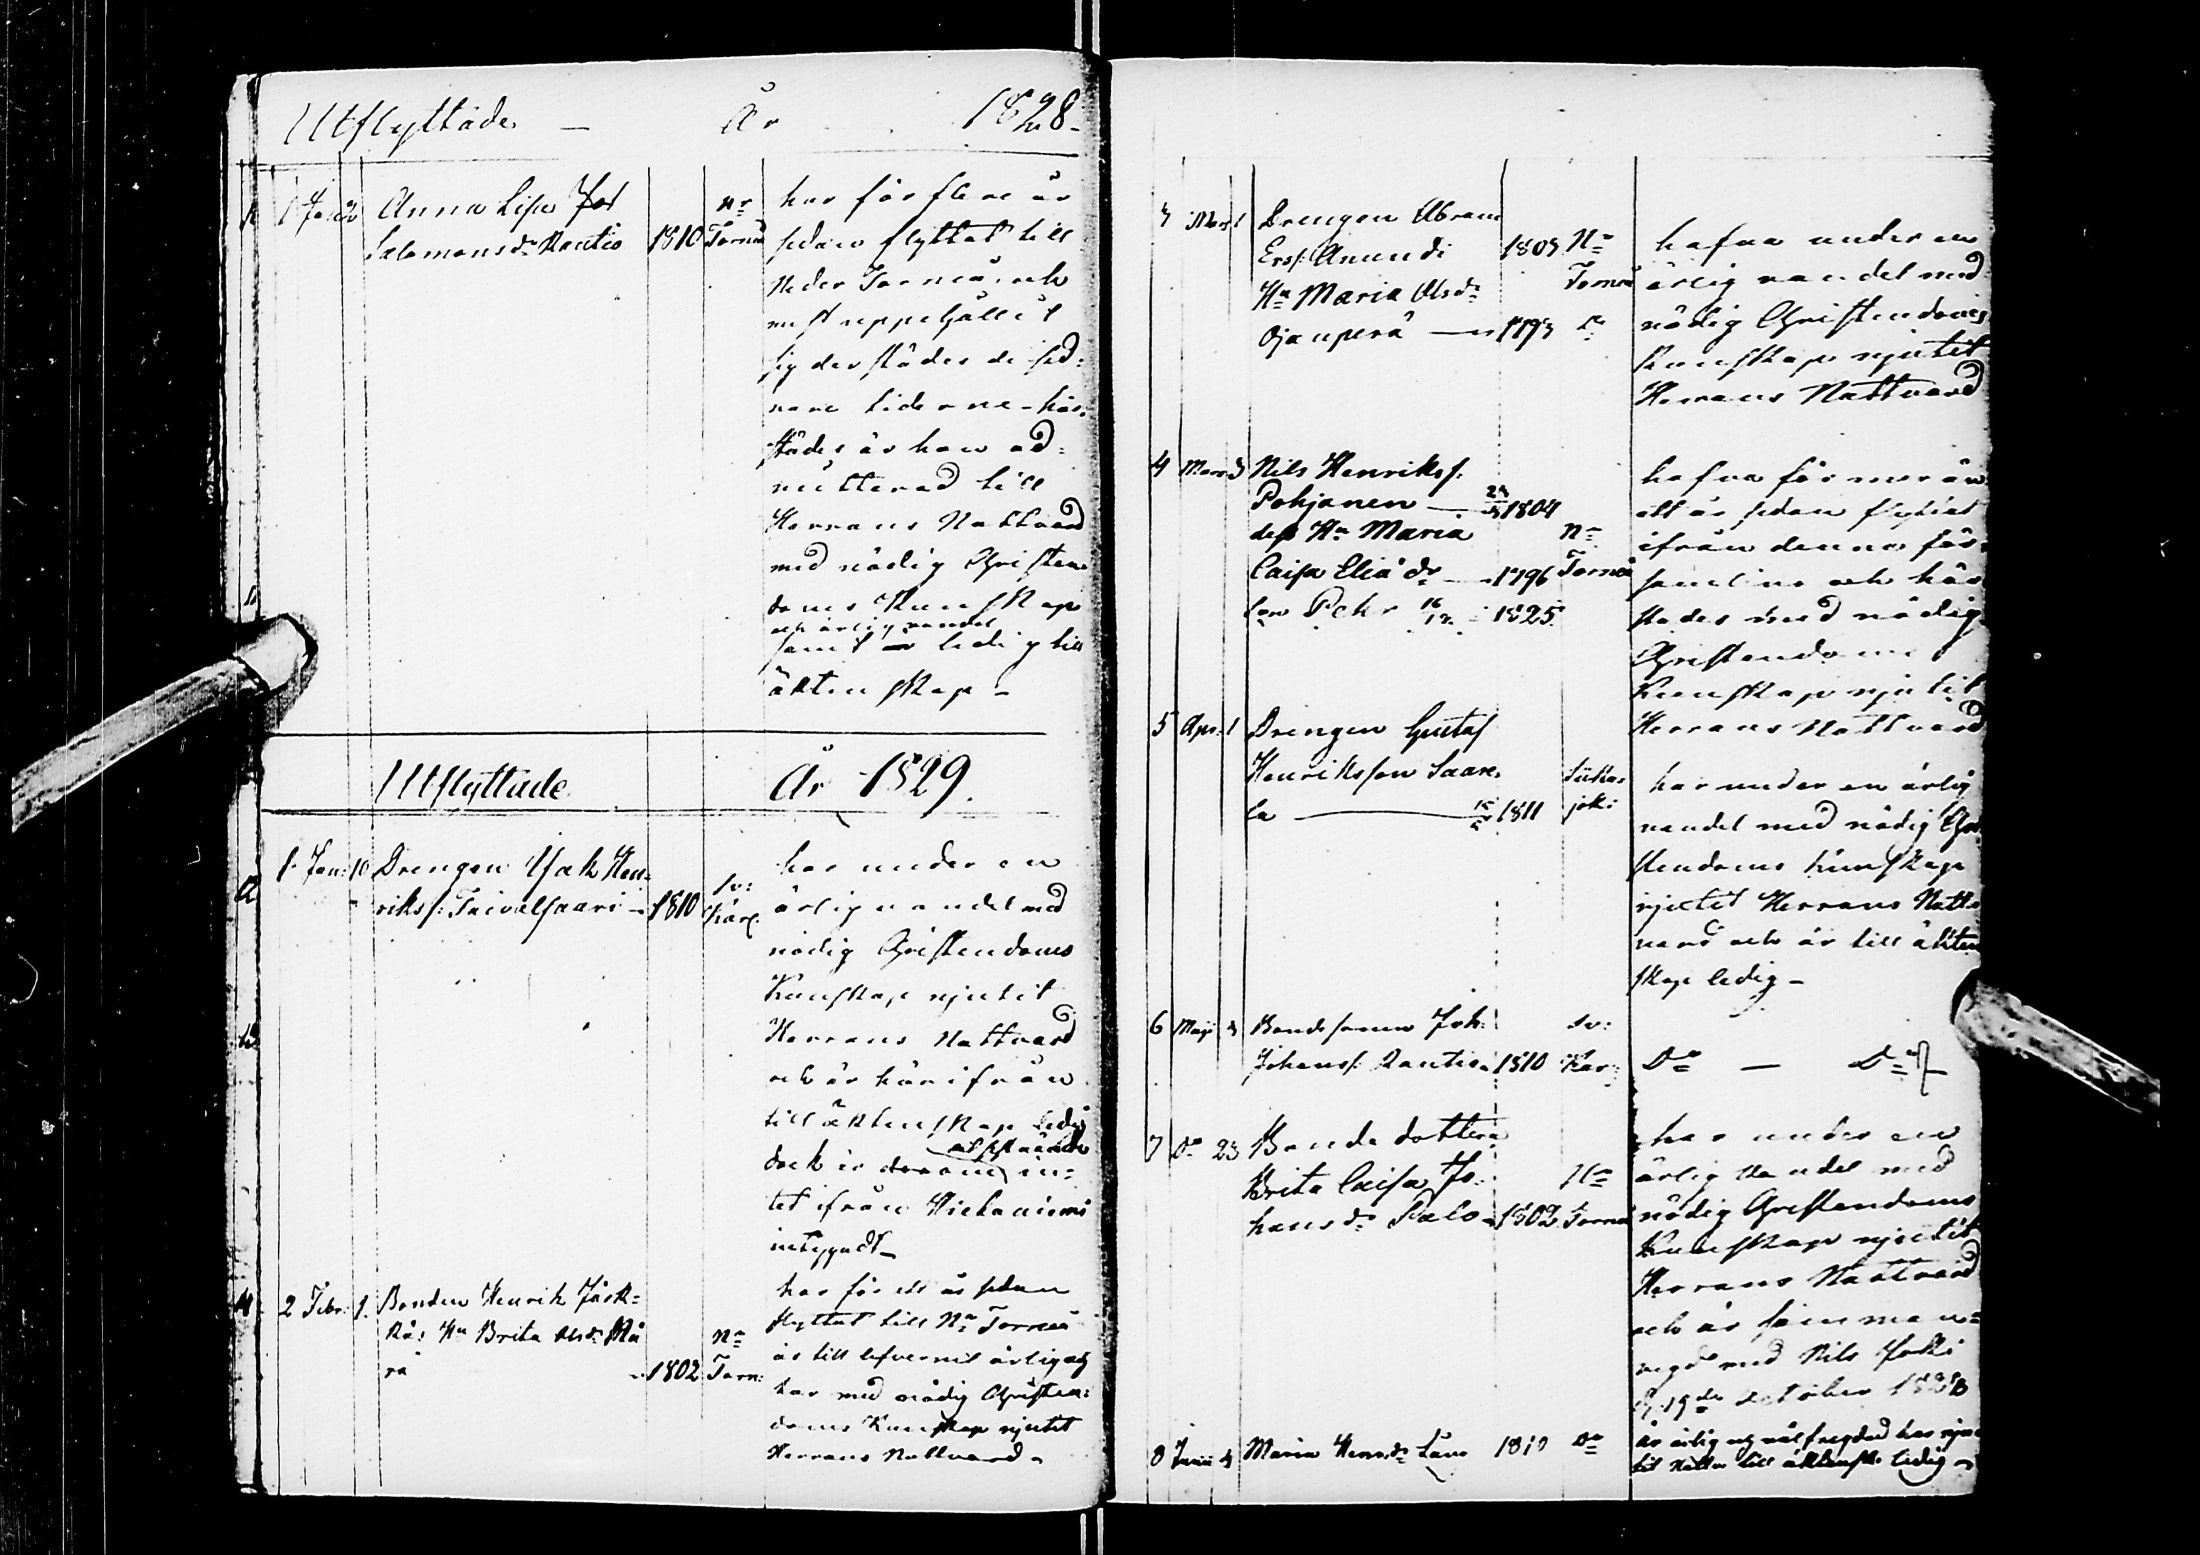 Utflyttade — År 1828
Anna Lisa
Salomonsdr Rautio 1810 Nr Torneå
har för flere år
sedan flyttat till
Neder Torneå, och
mest uppehållit
sig derstädes de sed-
nare tiderne - här-
städes är hon ad-
mitterad till
Herrans Nattvard
med nödig Christen-
doms Kunskap
och ärlig vandel
samt ledig till
äktenskap -
Utflyttade År 1829.
1. Jan: 10 Drengen Isak Hen-
riks: Taivalsaari - 1810 Sv: Kar:
har under en
ärlig vandel med
nödig Christendoms
Kunskap njutit
Herrans Nattvard
och är härifrån
till äktenskap ledig
dock är derom in-
tet ifrån Hietaniemi
intygadt -
2 Febr: 1. Bonden Henrik
Hu Brita Olsdr
1802 Nr Torn:
har för ett år sedan
flyttat till Nr Torneå
är till lefvernet ärlig och
har med nödig Christen-
doms Kunskap njutit
Herrans Nattvard -
3 Mars 1 Drengen Abram
Ers: Anundi 1803 Nr
Hu Maria Olsdr Torneå
Ojanperä — 1793 Do
hafva under en
ärlig vandel med
nödig Christendoms
Kunskap njutit
Herrans Nattvard
4 Mars 3 Nils Henriks:
Pohjanen — 1804
dess Hu Maria Nr
Caisa Eliædr — 1796 Torneå
son Pehr 16/12 - 1825
hafva för mer än
ett år sedan flyttat
ifrån denna för-
samling och här-
städes med nödig
Christendoms
Kunskap njutit
Herrans Nattvard
5 Apr: 1 Drengen Gustaf
Henriksson Saare-
la — 1811
har under en ärlig
vandel med nödig Chri-
stendoms Kunskap
njutit Herrans Natt-
vard och är till äkten-
skap ledig -
6 Maji Bondesonen Joh:
Johans: Rautio 1810 Sv: Kar:
Do — Do
7 Do 23 Bonde dottern
Brita Caisa Jo-
hansdr Palo - 1802 Nr Torneå
har under en
ärlig vandel med
nödig Christendoms
Kunskap njutit
Herrans Nattvard
och är samman-
vigd med Nils
d. 19de October 1828
8 Junii Maria Henrdr 1810 Do
är ärlig och välfregdad har nju-
tit Nattv: till äktensk: ledig -